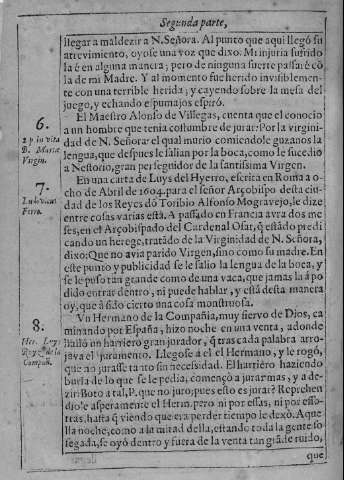 Segunda parte,
llegar a maldezir a N. Señora. Al punto que aqui llegó su
atrevimiento, oyose una voz que dixo. Mi injuria sufrido
la é en alguna manera; pero de ninguna suerte passaré cõ
la de mi Madre. Y al momento fue herido invisiblemente
con una terrible herida; y cayendo sobre la mesa del
juego, y echando espumajos espiró.
6.
2 p in vita
B. Mariæ
Virgin.
El Maestro Alonso de Villegas, cuenta que el conocio
a un hombre que tenia costumbre de jurar: Por la virgini-
dad de N. Señora: el qual murio comiendole guzanos la
lengua, que despues le salian por la boca, como le sucedio
a Nestorio, gran perseguidor de la santissima Virgen.
7.
Ludovicus
Ferro.
En una carta de Luys del Hyerro, escrita en Roma a o-
cho de Abril de 1604. para el señor Arçobispo desta ciu-
dad de los Reyes dõ Toribio Alfonso Mogravejo, le dize
entre cosas varias esta. A passado en Francia avra dos me-
ses, en el Arçobispado del Cardenal Osat, q̃ estãdo predi
cando un herege, tratãdo de la Virginidad de N. Señora,
dixo: Que no avia parido Virgen, sino como su madre. En
este punto y publicidad se le salio la lengua de la boca, y
se le puso tan grande como de una vaca, que jamas la à po
dido entrar dentro, ni puede hablar, y està desta manera
oy, que à sido cierto una cosa monstruosa.
8.
Her. Luys
Ruyz de la
Compañ.
Vn Hermano de la Compañia, muy siervo de Dios, ca
minando por España, hizo noche en una venta, adonde
hallò un harriero gran jurador, q̃ tras cada palabra arro-
java el juramento. Llegose a el el Hermano, y le rogò,
que no jurasse tanto sin necessidad. El harriero haziendo
burla de lo que se le pedia, començò a jurar mas, y a de-
zir: Boto a tal, P. que no juro; pues esto es jurar? Reprehen
diole asperamente el Herm. pero ni por essas, ni por esso-
tras, hasta q̃ viendo que era perder tiempo le dexò. Aque
lla noche, como a la mitad della, estando toda la gente so
segada, se oyò dentro y fuera de la venta tan grãde ruido,
que